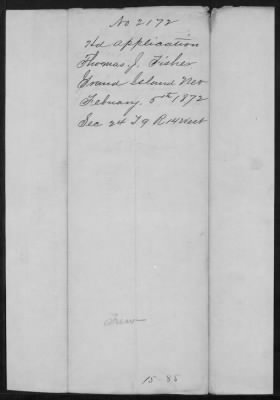 No 2172
Hd Application
Thomas. J. Fisher
Grand Island Neb
February. 5th 1872
Sec 24 T 9 R 14 West
15-88